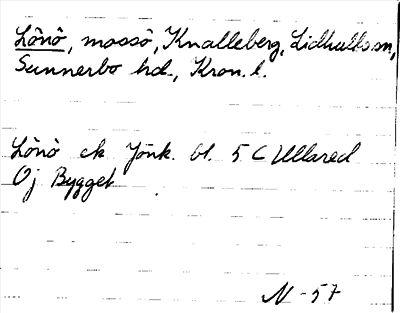 Lönö, mossö, Knalleberg, Lidhults sn,
Sunnerbo hd., Kron. l.
Lönö ek Jönk. bl. 5 C Ullared
Oj Bygget
N -57